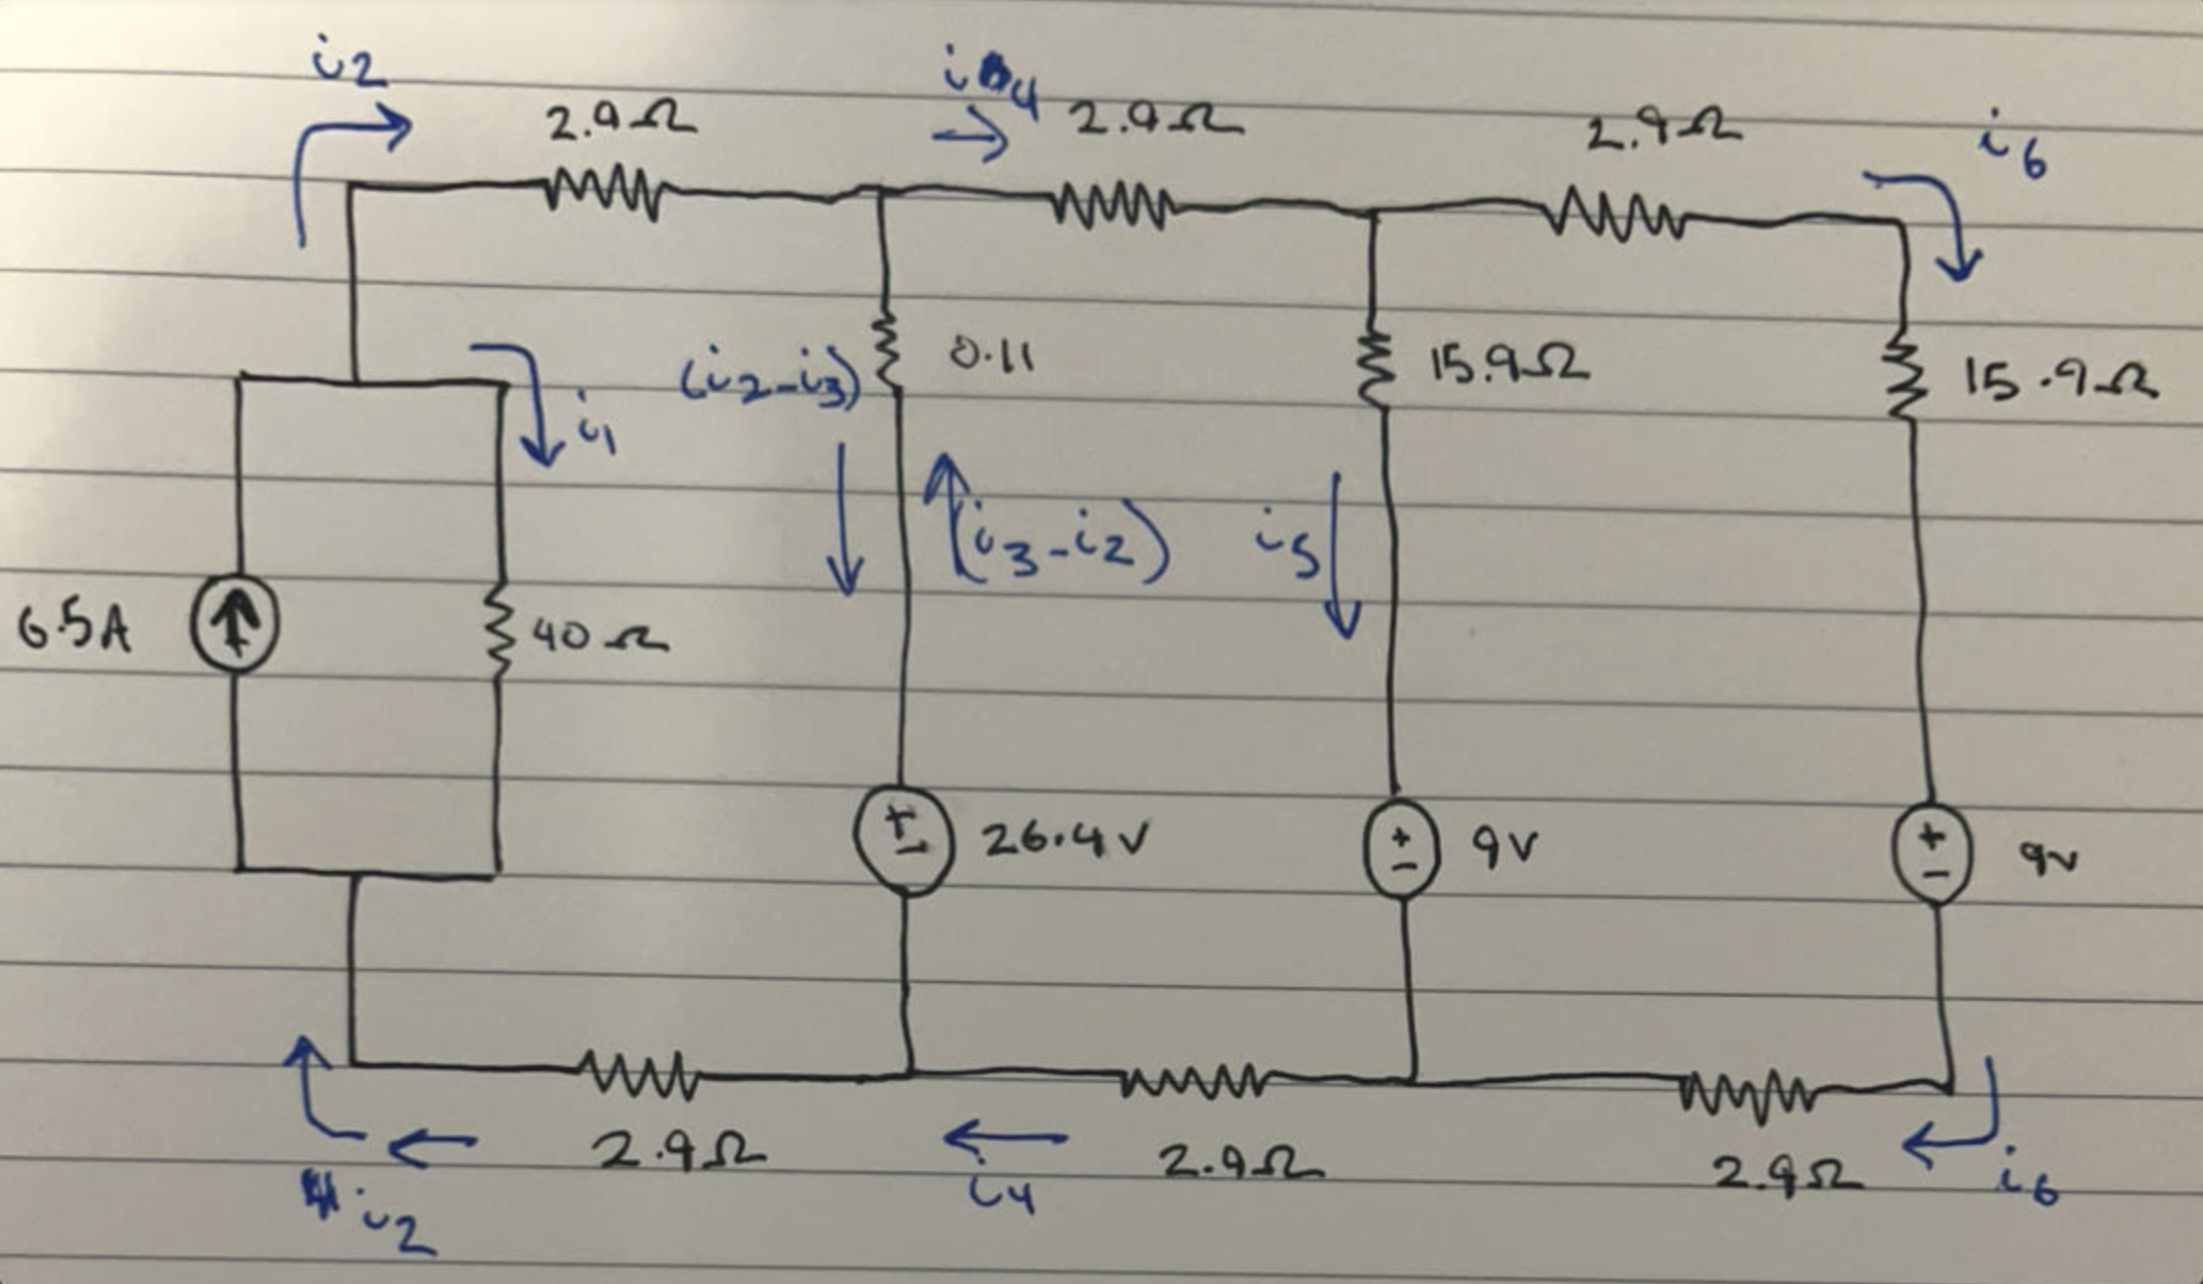 i2
i4
2.9Ω
2.9Ω
2.9Ω
i6
(i2-i3)
0.11
15.9Ω
15.9Ω
i1
(i3-i2)
i5
6.5A
40Ω
+
-
26.4V
+
-
9V
+
-
9V
2.9Ω
2.9Ω
2.9Ω
i2
i4
i6